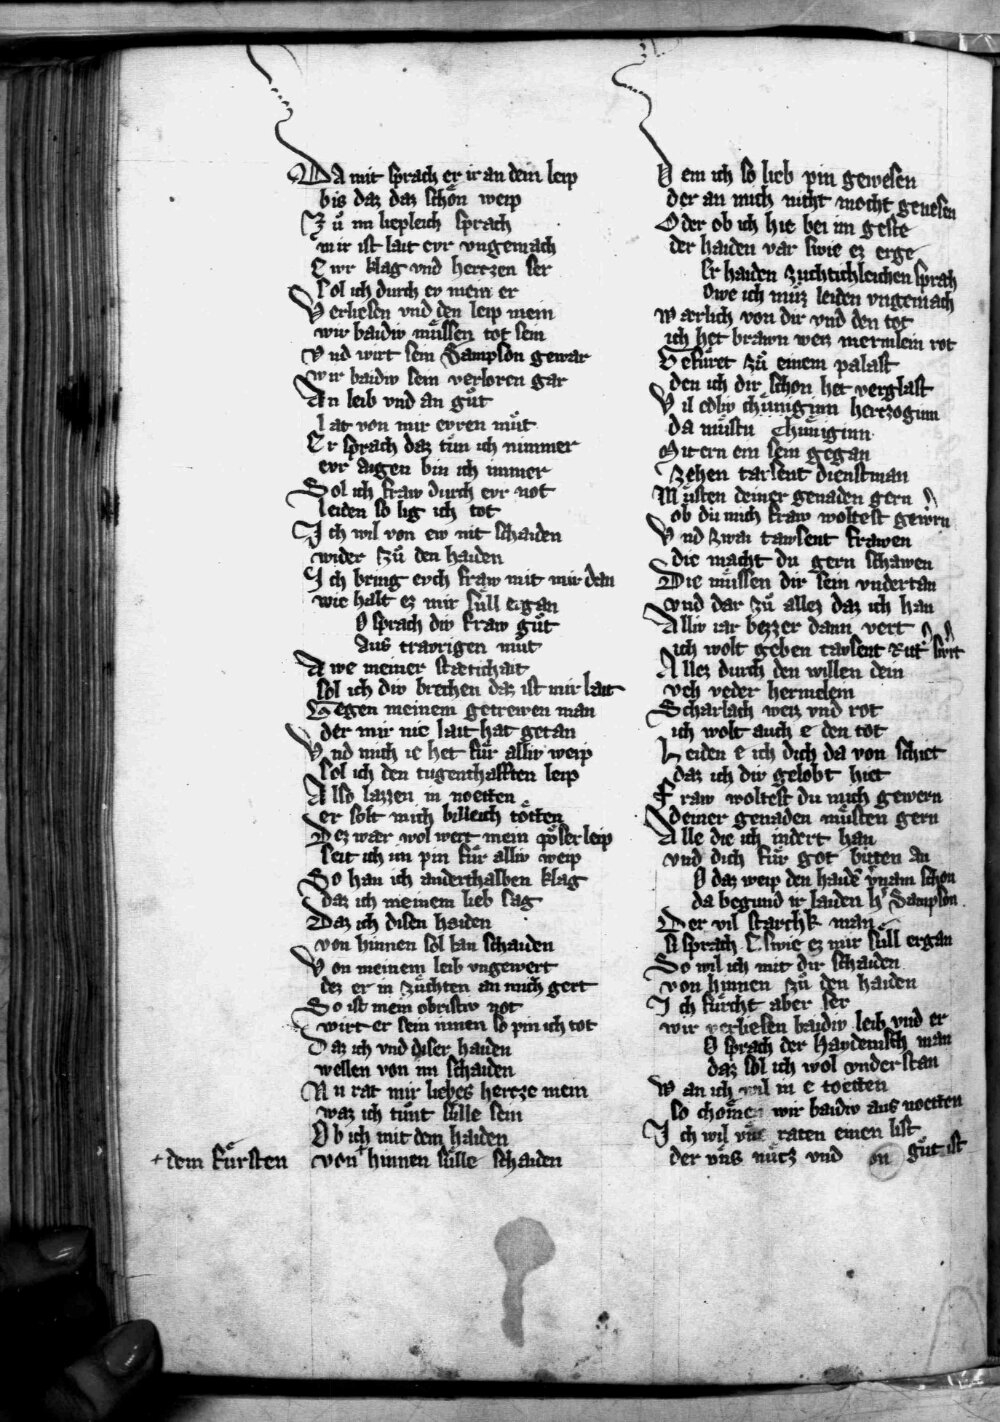 Da mit sprach er ir an dein leip
bis daz daz schön weip
Zů im liepleich sprach
mir ist lait evr vngemach
Ewr klag vnd hertzen ser
sol ich durch ev mein er
Verliesen vnd den leip mein
wir baidiv müssen tot sein
Vnd wirt sein Sampson gewar
wir baidiv sein verloren gar
An leib vnd an gůt
lat von mir evren můt
Er sprach daz tůn ich nimmer
evr aigen bin ich immer
Sol ich fraw durch evr not
leiden so lig ich tot
Ich wil von ew nit schaiden
wider zů den haiden
Ich bring evch fraw mit mir dan
wie halt ez mir süll ergan
Do sprach div fraw gůt
aus travrigen můt
Awe meiner stætichait
sol ich div brechen daz ist mir lait
Gegen meinem getrewen man
der mir nie lait hat getan
Vnd mich ie het für alliv weip
sol ich den tugenthafften leip
Also lazzen in noetten
er solt mich billeich tötten
Dez wær wol wert mein pöser leip
seit ich im pin für alliv weip
So han ich anderthalben klag
daz ich meinem lieb sag
Daz ich disen haiden
von hinnen sol lan schaiden
Von meinem leib vngewert
dez er in züchten an mich gert
So ist mein obristiv not
wirt er sein innen so pin ich tot
Daz ich vnd diser haiden
wellen von im schaiden
Nu rat mir liebes hertze mein
waz ich tůn süll sein
Ob ich mit dem haiden
von + hinnen sülle schaiden
+ dem fürsten
Dem ich so lieb pin gewesen
der an mich nicht mocht genesen
Oder ob ich hie bei im geste
der haiden var swie ez erge
Er haiden zuchtichleichen sprah
Owe ich můz leiden vngemach
Wærlich von dir vnd den tot
ich het brawn weiz mermlein rot
Gefüret zů einem palast
den ich dir schon het verglast
Vil edliv chüniginn hertzoginn
da müstu chüniginn
Mit ern ein sein gegan
zehen tavsent dienstman
Müsten deiner genaden gern
ob du mich fraw woltest gewern
Vnd zwai tawsent frawen
die macht du gern schawen
Die müssen dir sein vndertan
vnd dar zů allez daz ich han
Alliv iar bezzer dann vert
ich wolt geben tavsent Rit' swt
Allez durch den willen dein
veh veder hermelein
Scharlach weiz vnd rot
ich wolt auch e den tot
Leiden e ich dich da von schiet
daz ich dir gelobt hiet
Fraw woltest du mich gewern
deiner genaden müsten gern
Alle die ich indert han
vnd dich für got bitten an
Do daz weip den haidē v'nam schon
da begund ir laiden h' Sampson
Der vil starchk man
si sprach swie ez mir süll ergan
So wil ich mit dir schaiden
von hinnen zů den haiden
Ich fürcht aber ser
wir verliesen baidiv leib vnd er
Do sprach der haydenisch man
daz sol ich wol vnderstan
Wan ich wil in e toetten
so chomen wir baidiv aus noetten
Ich wil vns raten einen list
der vns nütz vnd gůt ist